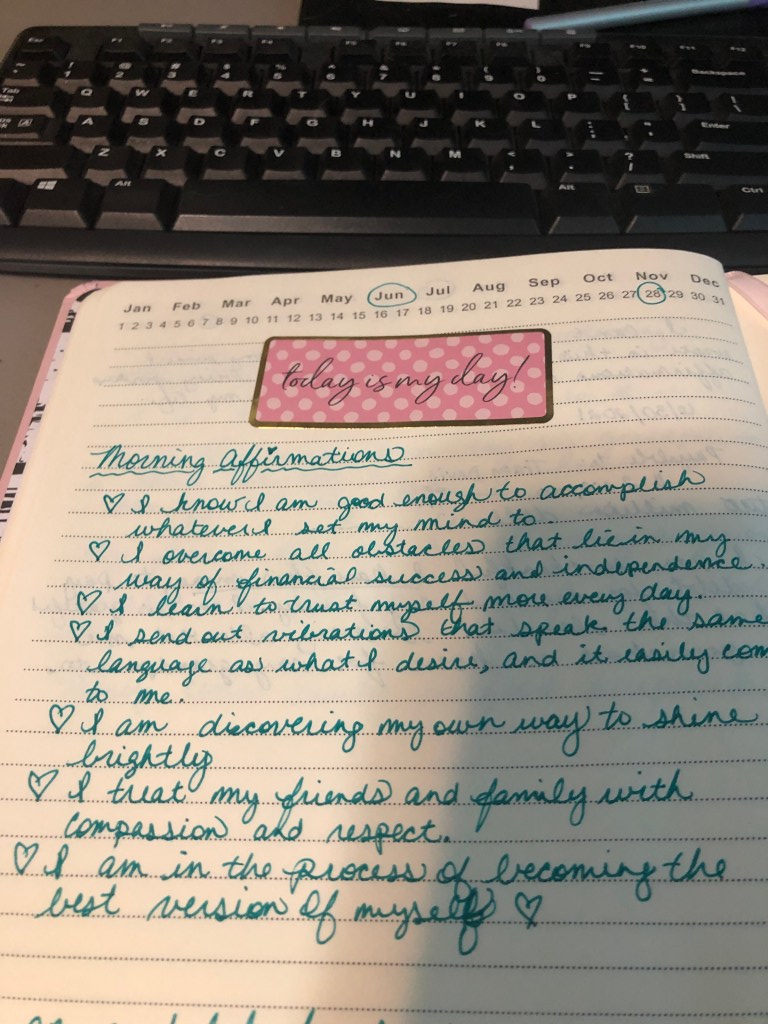 Esc F1 F2 F3 F4 F5 F6 F7 F8 F9 F10 F11 F12
~ ! 1 @ 2 # 3 $ 4 % 5 ^ 6 & 7 * 8 ( 9 ) 0 — - + = Backspace
Tab Q W E R T Y U I O P { [ } ] | \
A S D F G H J K L : ; " ' Enter
Z X C V B N M < , > . ? / Shift
Alt Alt Ctrl
Jan Feb Mar Apr May Jun Jul Aug Sep Oct Nov Dec
1 2 3 4 5 6 7 8 9 10 11 12 13 14 15 16 17 18 19 20 21 22 23 24 25 26 27 28 29 30 31
today is my day!
Morning Affirmations
♡ I know I am good enough to accomplish
whatever I set my mind to.
♡ I overcome all obstacles that lie in my
way of financial success and independence.
♡ I learn to trust myself more every day.
♡ I send out vibrations that speak the same
language as what I desire, and it easily com
to me.
♡ I am discovering my own way to shine
brightly
♡ I treat my friends and family with
compassion and respect.
♡ I am in the process of becoming the
best version of myself ♡